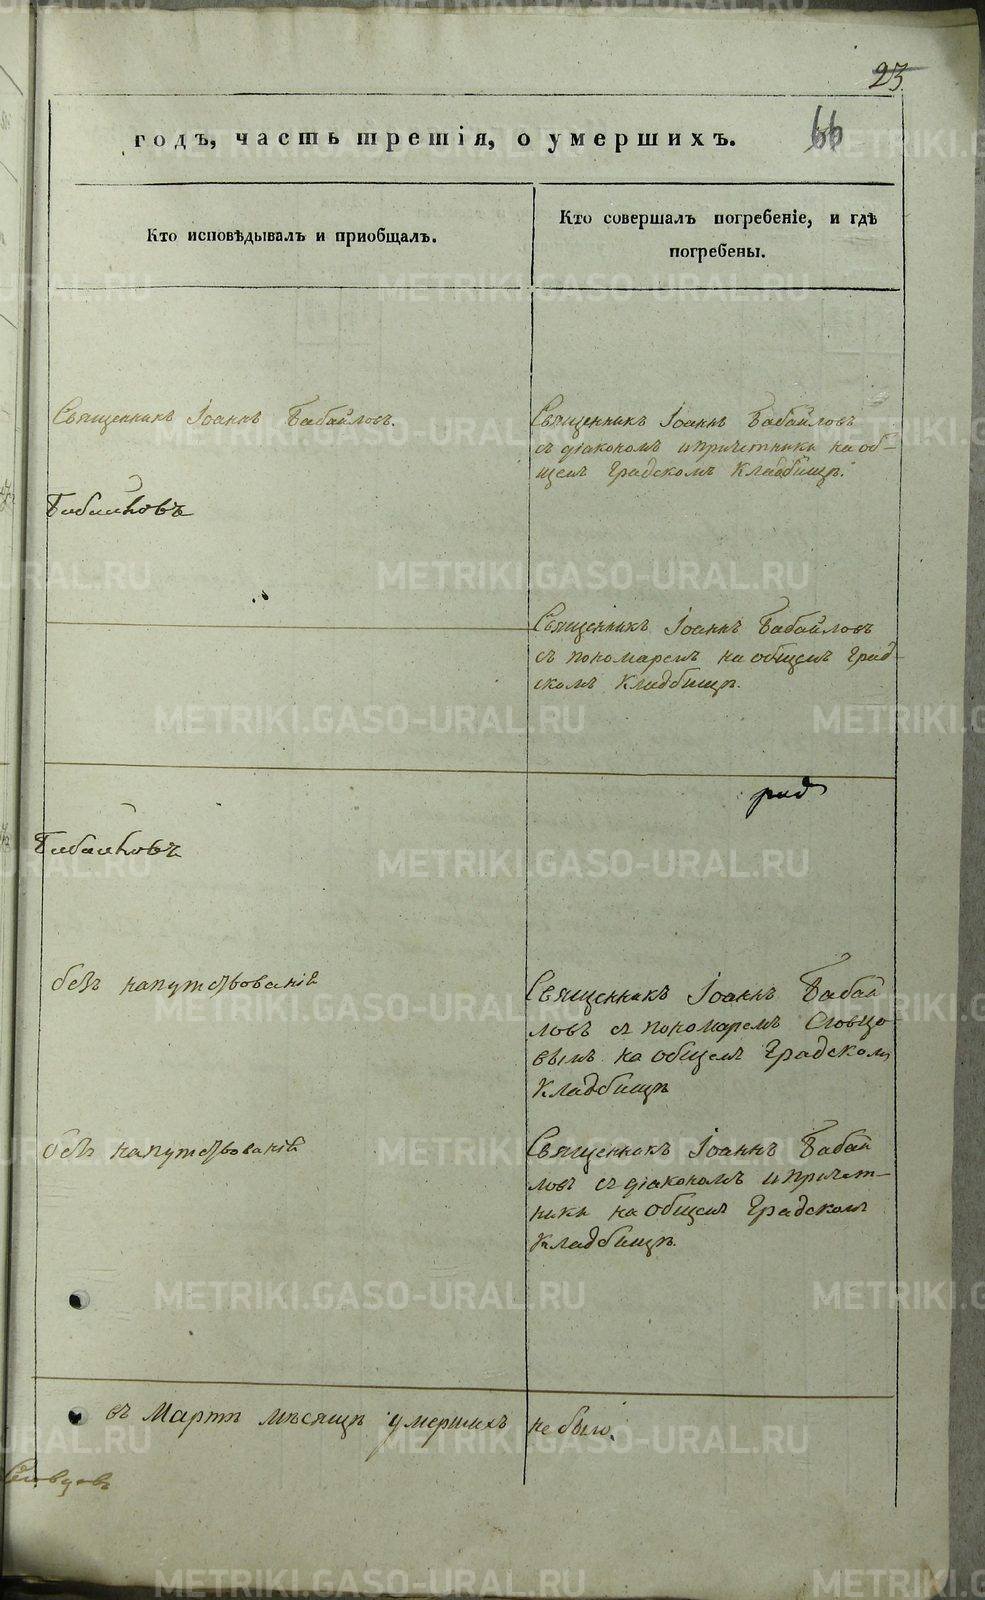 23
годъ, часть третія, о умершихъ.
66
Кто исповѣдывалъ и приобщалъ.
Кто совершалъ погребеніе, и гдѣ
погребены.
Священникъ Іоаннъ Бабайловъ.
Священникъ Іоаннъ Бабайловъ
съ діакономъ и причетники на об-
щемъ Градскомъ Кладбищѣ.
Священникъ Іоаннъ Бабайловъ
съ пономаремъ на общемъ Град-
скомъ Кладбищѣ.
безъ напутствованій
Священникъ Іоаннъ Бабай
ловъ съ пономаремъ Словцо
вымъ на общемъ Градскомъ
Кладбищѣ
безъ напутствованій
Священникъ Іоаннъ Бабай
ловъ съ діакономъ и причет-
ники на общемъ Градскомъ
Кладбищѣ.
въ Мартѣ мѣсяцѣ умершихъ не было.
Словцовъ
METRIKI.GASO-URAL.RU